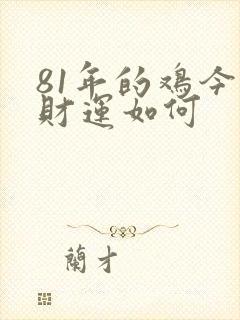 81年的鸡今
财運如何
蘭才